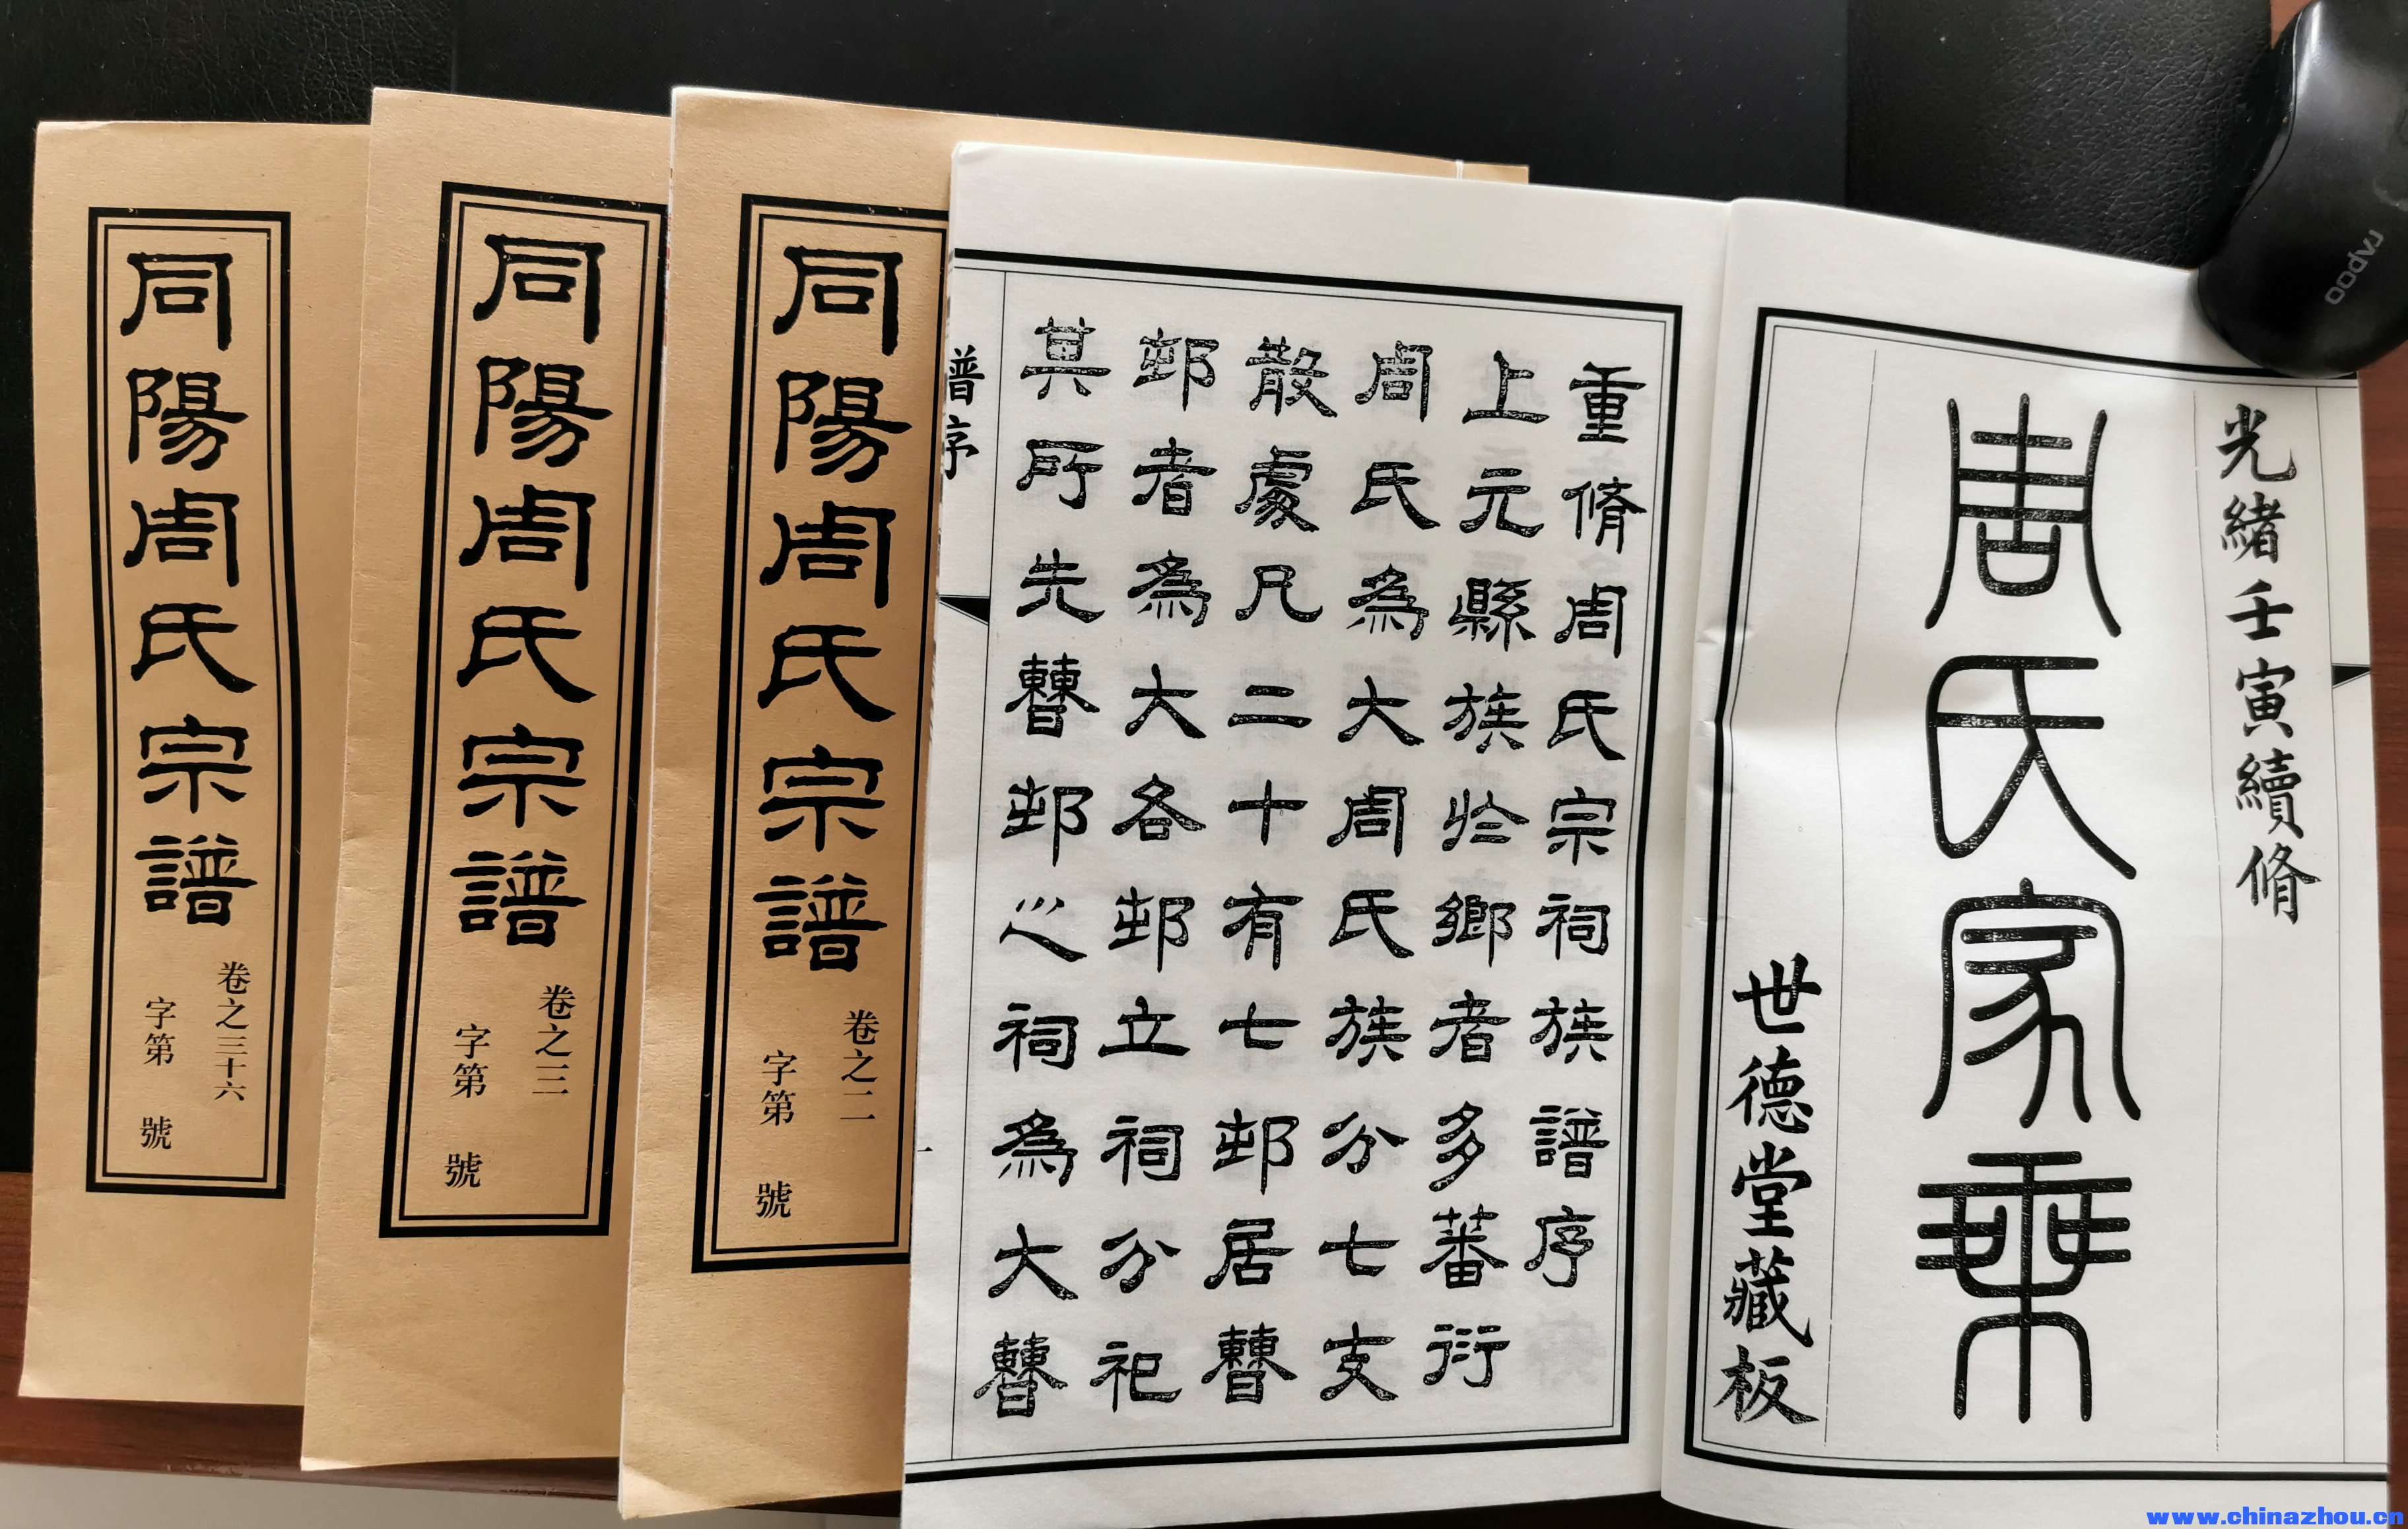 光緒壬寅續脩
周氏家乘
世德堂藏板
重脩周氏宗祠族譜序
上元縣族於鄉者多蕃衍
周氏為大周氏族分七支
散處凡二十有七邨居曹
邨者為大各邨立祠分祀
其所先曹邨之祠為大曹
譜序
一
同陽周氏宗譜
卷之二
字第 號
同陽周氏宗譜
卷之三
字第 號
同陽周氏宗譜
卷之三十六
字第 號
rapoo
www.chinazhou.cn